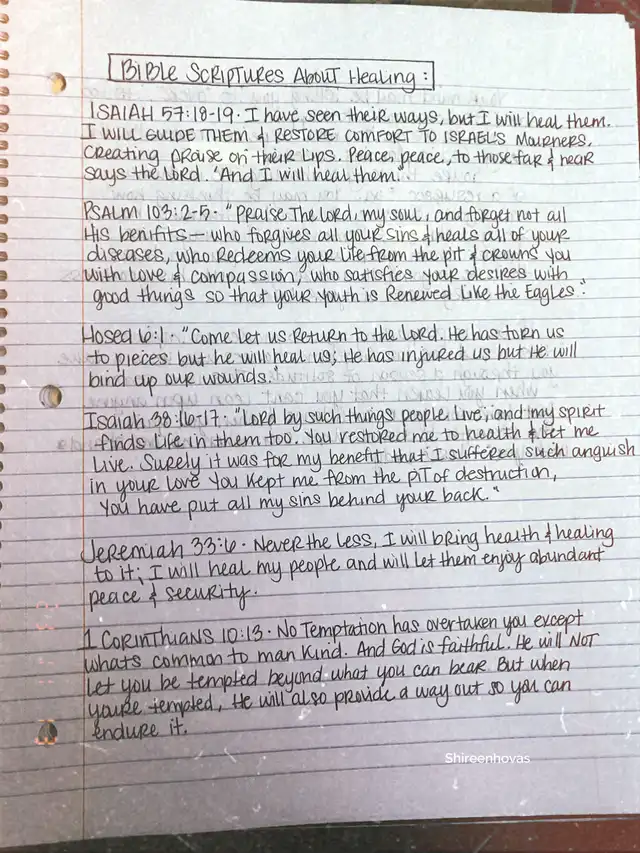 Bible Scriptures About Healing:
ISAIAH 57:18-19. I have seen their ways, but I will heal them.
I WILL GUIDE THEM & RESTORE COMFORT TO ISRAEL'S MOURNERS,
Creating praise on their lips. Peace, peace, to those far & near
says the Lord. "And I will heal them."
PSALM 103:2-5. "Praise The Lord, my soul, and forget not all
His benifits— who forgives all your sins & heals all of your
diseases, who Redeems your life from the pit & crowns you
with Love & compassion, who satisfies your desires with
good things so that your youth is Renewed Like the Eagles."
Hosea 6:1. "Come let us Return to the Lord. He has torn us
to pieces but he will heal us; He has injured us but He will
bind up our wounds."
Isaiah 38:16-17. "Lord by such things people Live, and my spirit
finds Life in them too. You restored me to health & Let me
Live. Surely it was for my benefit that I suffered such anguish
in your Love You Kept me from the PiT of destruction,
You have put all my sins behind your back."
Jeremiah 33:6. Never the Less, I will bring health & healing
to it; I will heal my people and will let them enjoy abundant
peace & security.
1 CORINTHIANS 10:13. No Temptation has overtaken you except
whats common to man Kind. And God is faithful. He will NOT
let you be tempted beyond what you can bear. But when
youre tempted, He will also provide a way out so you can
endure it.
Shireenhovas